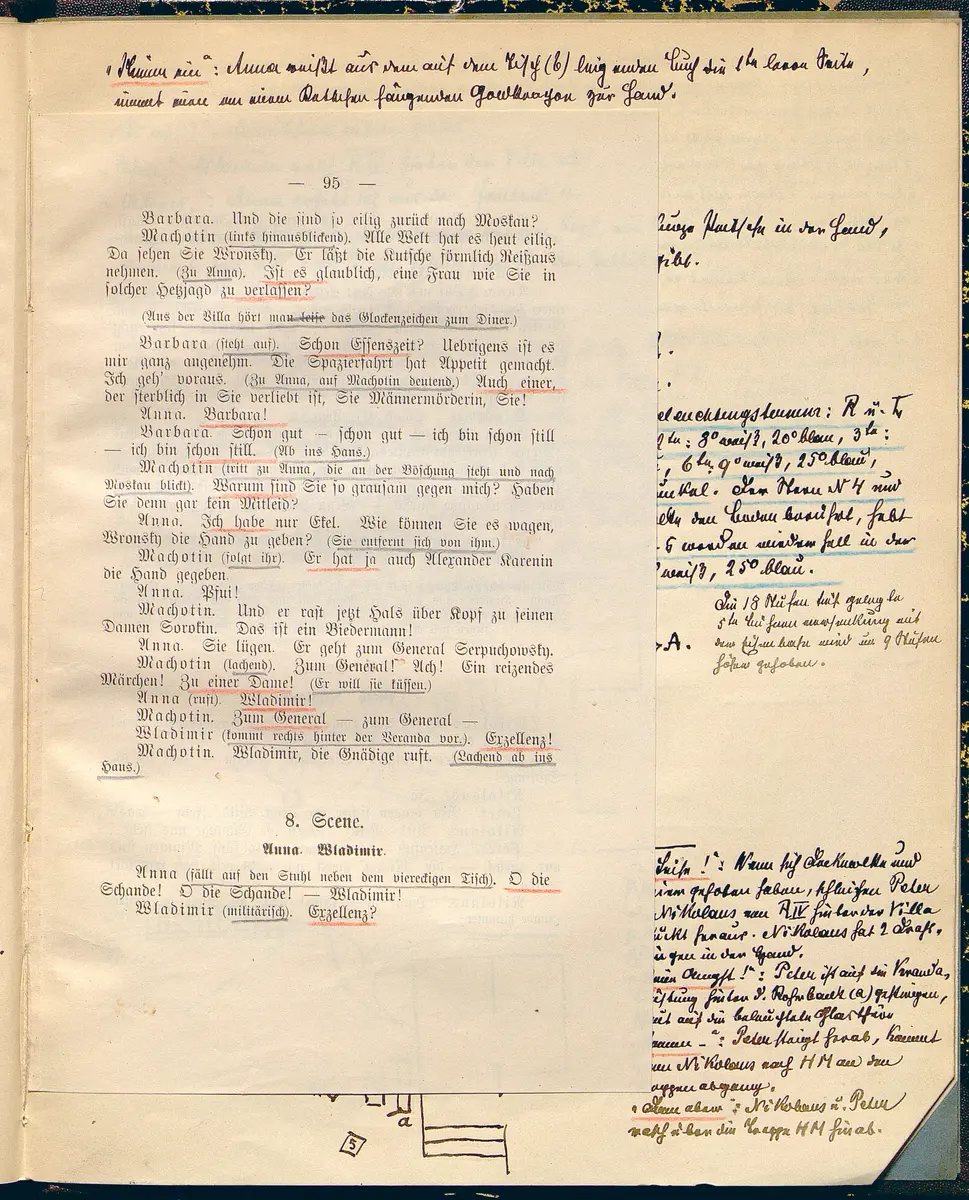 „Nimm ein": Anna reißt aus dem auf dem Tisch (b) liegenden Buch die 1te leere Seite,
nimmt einen an einem Kettchen hängenden Goldkrayon zur Hand.
— 95 —
Barbara. Und die sind so eilig zurück nach Moskau?
Machotin (links hinausblickend). Alle Welt hat es heut eilig.
Da sehen Sie Wronsky. Er läßt die Kutsche förmlich Reißaus
nehmen. (Zu Anna). Ist es glaublich, eine Frau wie Sie in
solcher Hetzjagd zu verlassen?
(Aus der Villa hört man leise das Glockenzeichen zum Diner.)
Barbara (steht auf). Schon Essenszeit? Uebrigens ist es
mir ganz angenehm. Die Spazierfahrt hat Appetit gemacht.
Ich geh' voraus. (Zu Anna, auf Machotin deutend.) Auch einer,
der sterblich in Sie verliebt ist, Sie Männermörderin, Sie!
Anna. Barbara!
Barbara. Schon gut — schon gut — ich bin schon still
— ich bin schon still. (Ab ins Haus.)
Machotin (tritt zu Anna, die an der Böschung steht und nach
Moskau blickt). Warum sind Sie so grausam gegen mich? Haben
Sie denn gar kein Mitleid?
Anna. Ich habe nur Ekel. Wie können Sie es wagen,
Wronsky die Hand zu geben? (Sie entfernt sich von ihm.)
Machotin (folgt ihr). Er hat ja auch Alexander Karenin
die Hand gegeben.
Anna. Pfui!
Machotin. Und er rast jetzt Hals über Kopf zu seinen
Damen Sorokin. Das ist ein Biedermann!
Anna. Sie lügen. Er geht zum General Serpuchowsky.
Machotin (lachend). Zum General! Ach! Ein reizendes
Märchen! Zu einer Dame! (Er will sie küssen.)
Anna (ruft). Wladimir!
Machotin. Zum General — zum General —
Wladimir (kommt rechts hinter der Veranda vor.). Exzellenz!
Machotin. Wladimir, die Gnädige ruft. (Lachend ab ins
Haus.)
8. Scene.
Anna. Wladimir.
Anna (fällt auf den Stuhl neben dem viereckigen Tisch). O die
Schande! O die Schande! — Wladimir!
Wladimir (militärisch). Exzellenz?
in der Hand,
R u.
8° weiß, 20° blau, 3te:
6te: 9° weiß, 25° blau,
Der Stern N 4 und
den Boden berührt, hebt
5 werden wieder hell in der
weiß, 25° blau.
Die 18 Stufen tief gelegte
5te Bühnenversenkung mit
der Eisenbahn wird um 9 Stufen
höher gehoben.
A.
Leise!": Wenn sich und
gehoben haben, schleichen Peter
Nikolaus von R IV hinter der Villa
heraus. Nikolaus hat 2
in der Hand.
Angst!": Peter ist auf die Veranda
hinter d. Rohrbank (a) gestiegen,
auf die beleuchtete Glasthüre
Peter steigt herab, kommt
Nikolaus nach H M an den
abgang.
„Dann aber": Nikolaus u. Peter
rasch über die Treppe H M hinab.
a
5